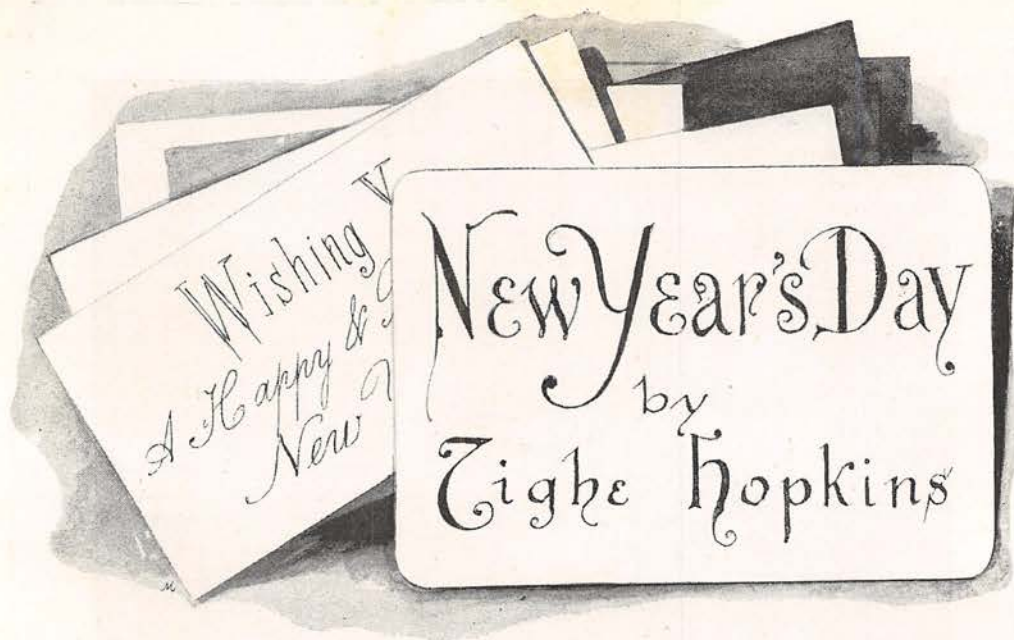 Wishing Y
A Happy &
New Y
New Year's Day
by
Tighe Hopkins
M